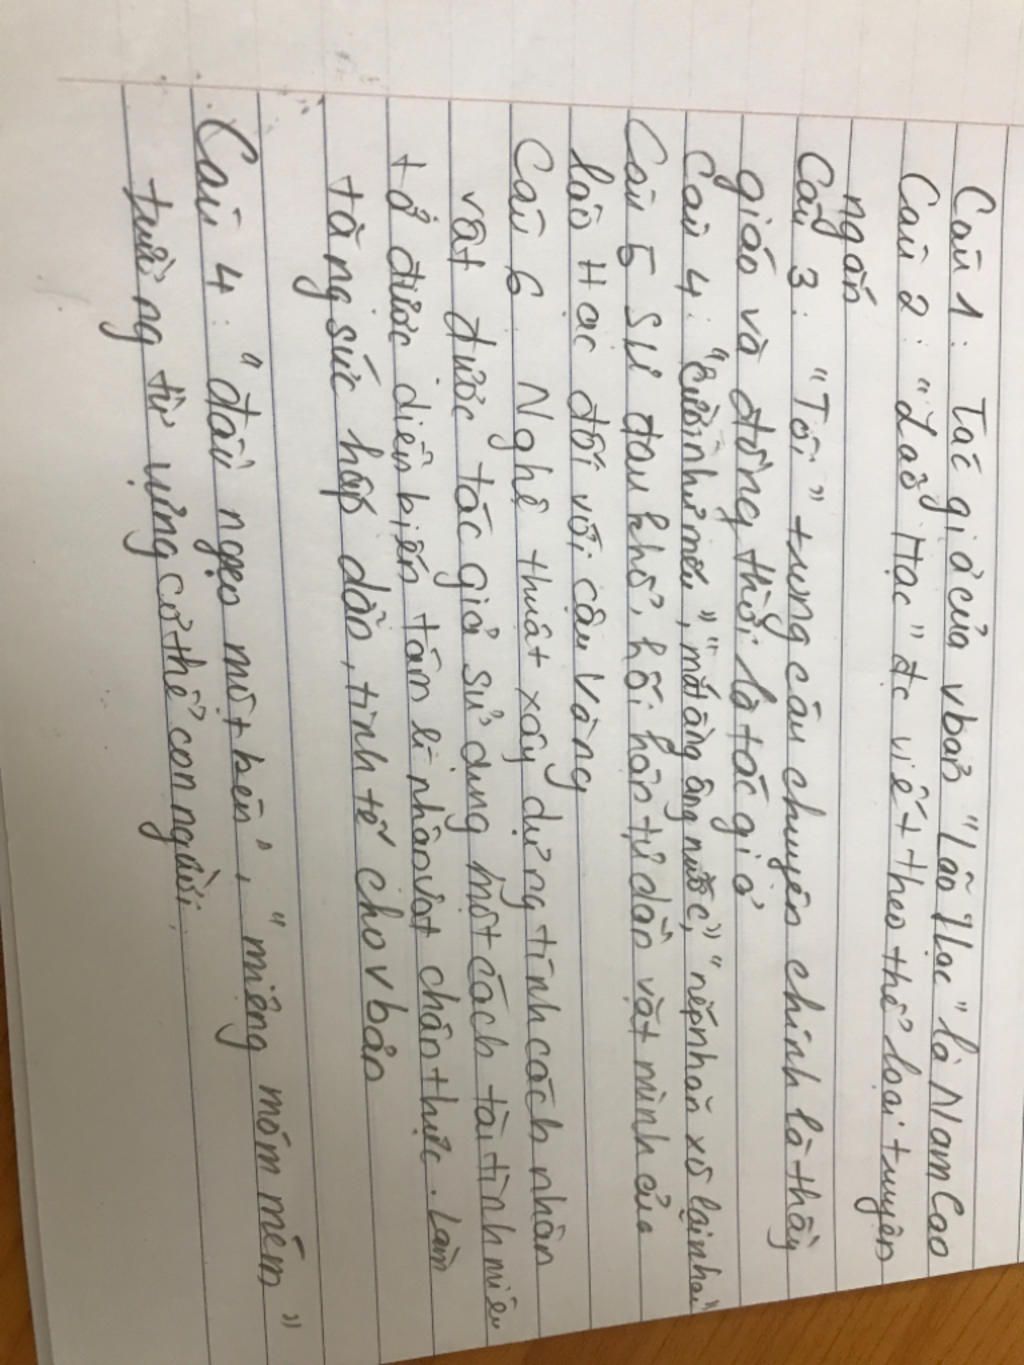 Câu 1: Tác giả của vbản "Lão Hạc" là Nam Cao
Câu 2: "Laõ Hạc" đc viết theo thể loại truyện
ngắn
Câu 3: "Tôi" trong câu chuyện chính là thầy
giáo và đồng thời là tác giả
Câu 4: "Cười như mếu", "mắt ầng ậng nước", "nếp nhăn xô lại nhau"
Câu 5 Sự đau khổ, hối hận tự dằn vặt mình của
lão Hạc đối với cậu Vàng
Câu 6. Nghệ thuật xây dựng tính cách nhân
vật được tác giả sử dụng một cách tài tình miêu
tả được diễn biến tâm lí nhân vật chân thực. Làm
tăng sức hấp dẫn, tinh tế cho vbản
Câu 4: "đầu ngẹo một bên", "miệng móm mém"
trường từ vựng cơ thể con người.